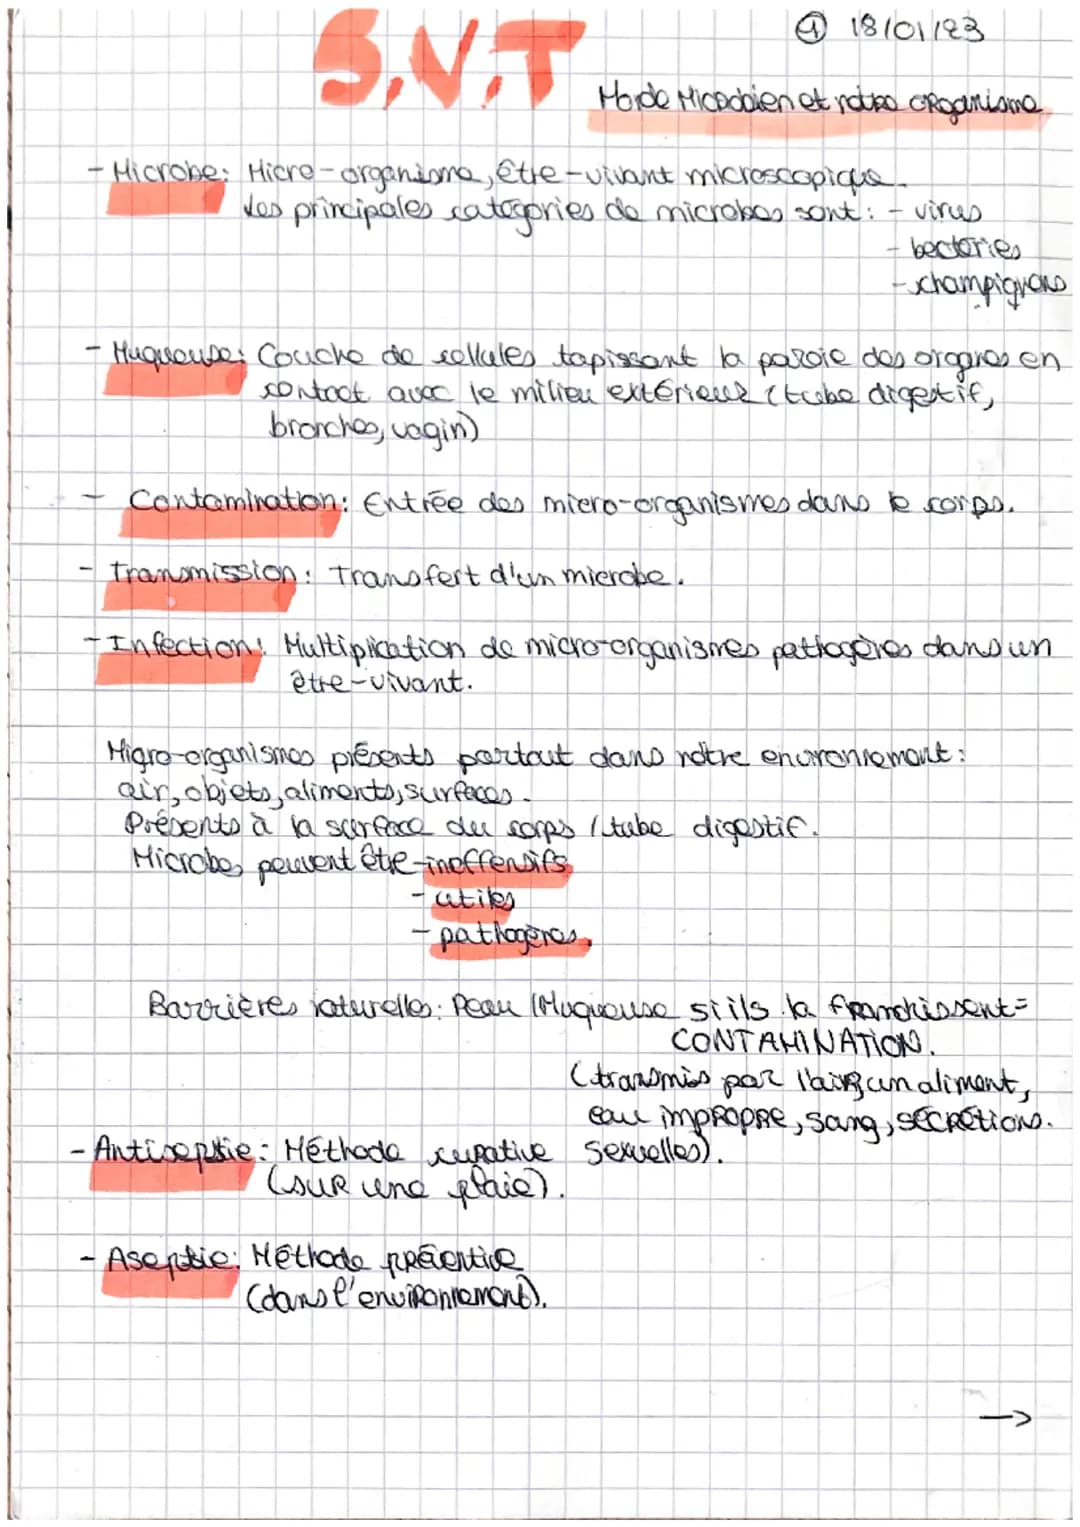 ① 18/01/23
S.V.T
Monde Microbien et notre organisme
- Microbe: Micro-organisme, être-vivant microscopique.
Les principales catégories de microbes sont: - virus
- bactéries
- champignons
- Muqueuse: Couche de cellules tapissant la paroie des organes en
contact avec le milieu extérieur (tube digestif,
bronches, vagin)
- Contamination: Entrée des micro-organismes dans le corps.
- Transmission: Transfert d'un microbe.
- Infection: Multiplication de micro-organismes pathogènes dans un
être-vivant.
Migro-organismes présents partout dans notre environnement:
air, objets, aliments, surfaces.
Présents à la surface du corps / tube digestif.
Microbes peuvent être - inoffensifs
- utiles
- pathogènes.
Barrières naturelles: Peau / Muqueuse si ils la franchissent =
CONTAMINATION.
(transmis par l'air, un aliment,
eau impropre, sang, sécrétions
- Antisepsie: Méthode curative sexuelles).
(sur une plaie).
- Asepsie: Méthode préventive
(dans l'environnement).
→